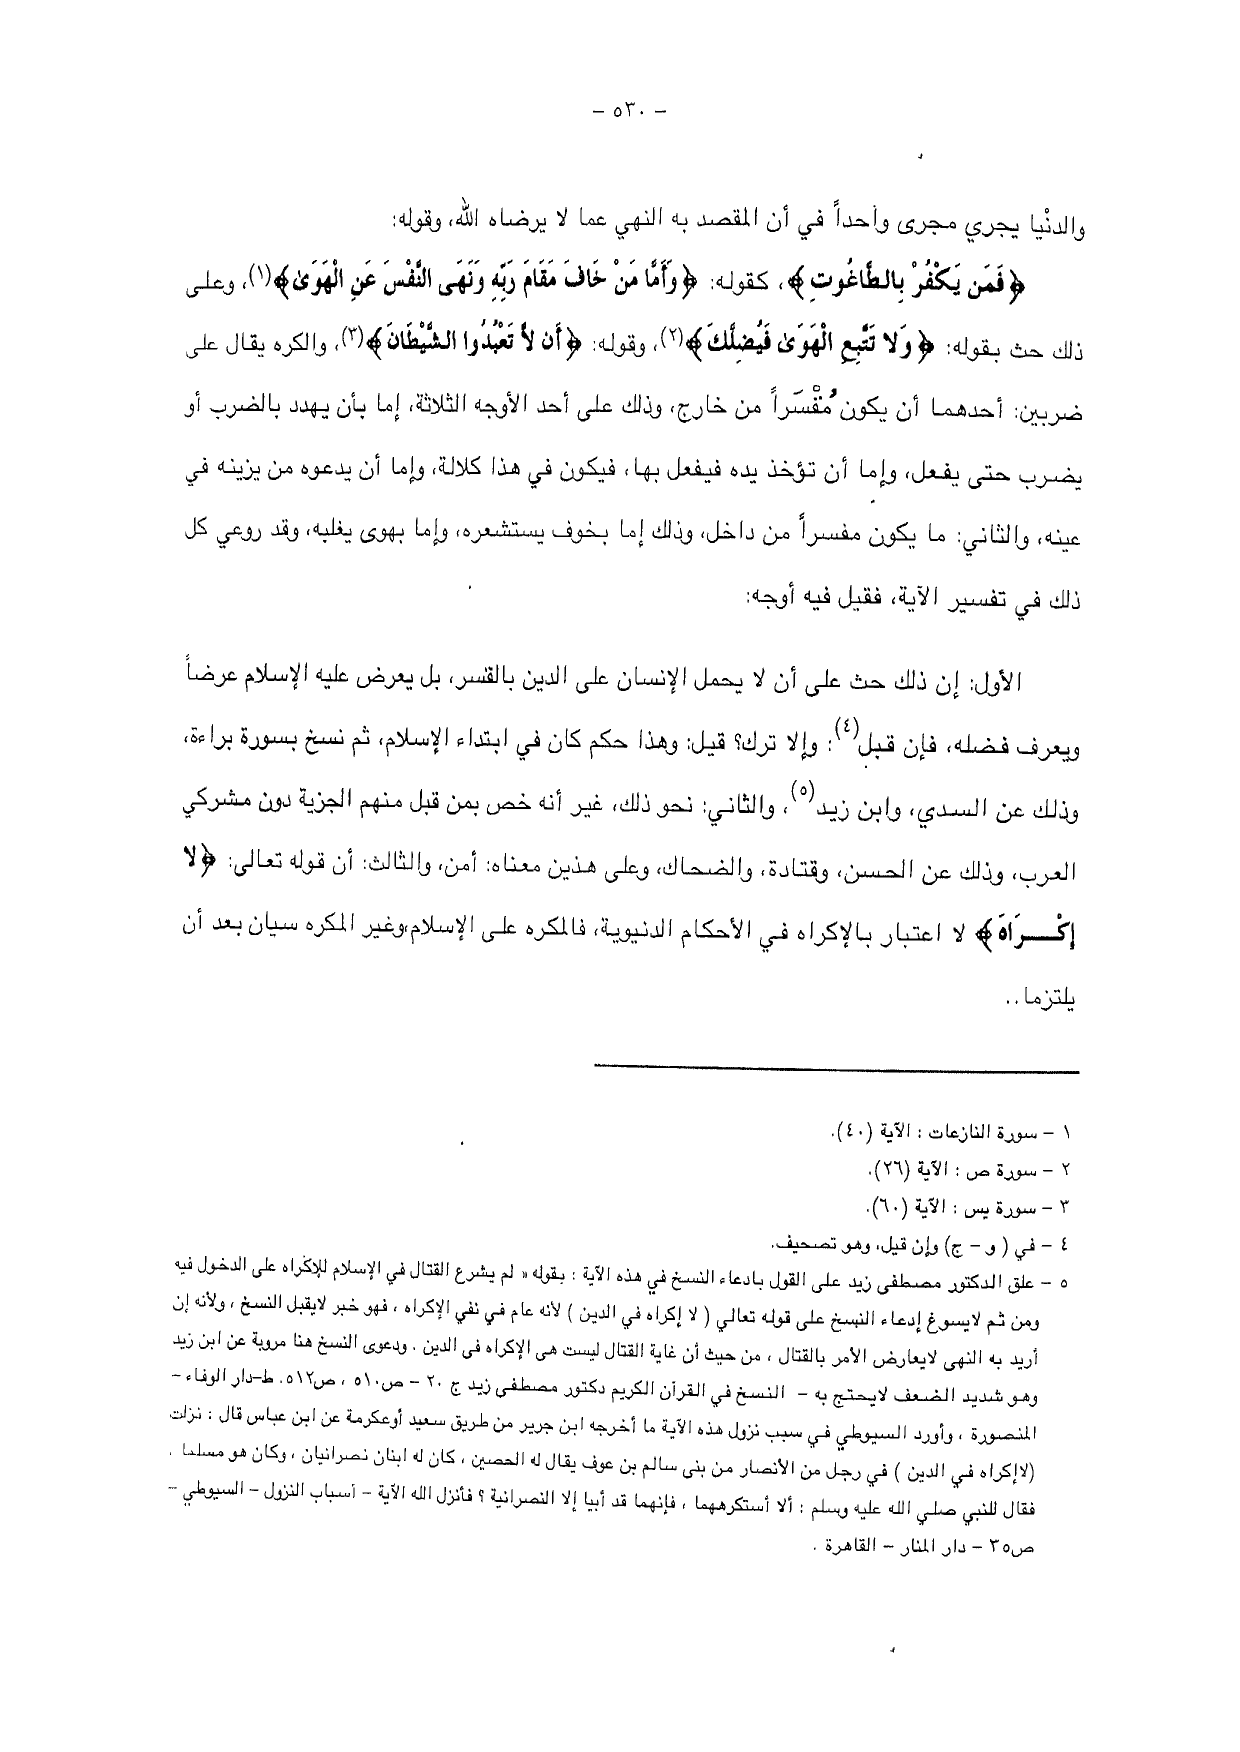 – ٥٣٠ –
والدنْيا يجري مجرى واحداً في أن المقصد به النهي عما لا يرضاه الله، وقوله:
﴿فَمَن يَكْفُرْ بِالطَّاغُوتِ﴾، كقوله: ﴿وَأَمَّا مَنْ خَافَ مَقَامَ رَبِّهِ وَنَهَى النَّفْسَ عَنِ الْهَوَىٰ﴾(١)، وعلى
ذلك حث بقوله: ﴿وَلَا تَتَّبِعِ الْهَوَىٰ فَيُضِلَّكَ﴾(٢)، وقوله: ﴿أَن لاَّ تَعْبُدُوا الشَّيْطَانَ﴾(٣)، والكره يقال على
ضربين: أحدهما أن يكون مُقْسَراً من خارج، وذلك على أحد الأوجه الثلاثة، إما بأن يهدد بالضرب أو
يضرب حتى يفعل، وإما أن تؤخذ يده فيفعل بها، فيكون في هذا كلالة، وإما أن يدعوه من يزينه في
عينه، والثاني: ما يكون مفسراً من داخل، وذلك إما بخوف يستشعره، وإما بهوى يغلبه، وقد روعي كل
ذلك في تفسير الآية، فقيل فيه أوجه:
الأول: إن ذلك حث على أن لا يحمل الإنسان على الدين بالقسر، بل يعرض عليه الإسلام عرضاً
ويعرف فضله، فإن قبل(٤): وإلا ترك؟ قيل: وهذا حكم كان في ابتداء الإسلام، ثم نسخ بسورة براءة،
وذلك عن السدي، وابن زيد(٥)، والثاني: نحو ذلك، غير أنه خص بمن قبل منهم الجزية دون مشركي
العرب، وذلك عن الحسن، وقتادة، والضحاك، وعلى هذين معناه: أمن، والثالث: أن قوله تعالى: ﴿لا
إِكْـــرَاهَ﴾ لا اعتبار بالإكراه في الأحكام الدنيوية، فالمكره على الإسلام،وغير المكره سيان بعد أن
يلتزما..
١ – سورة النازعات : الآية (٤٠).
٢ – سورة ص : الآية (٢٦).
٣ – سورة يس : الآية (٦٠).
٤ – في ( و – ج) وإن قيل، وهو تصحيف.
٥ – علق الدكتور مصطفى زيد على القول بادعاء النسخ في هذه الآية : بقوله « لم يشرع القتال في الإسلام للإكراه على الدخول فيه
ومن ثم لايسوغ إدعاء النسخ على قوله تعالي ( لا إكراه في الدين ) لأنه عام في نفي الإكراه ، فهو خبر لايقبل النسخ ، ولأنه إن
أريد به النهى لايعارض الأمر بالقتال ، من حيث أن غاية القتال ليست هى الإكراه فى الدين . ودعوى النسخ هنا مروية عن ابن زيد
وهو شديد الضعف لايحتج به – النسخ في القرآن الكريم دكتور مصطفى زيد ج ٢٠ – ص٥١٠ ، ص٥١٢. ط–دار الوفاء –
المنصورة ، وأورد السيوطي في سبب نزول هذه الآية ما أخرجه ابن جرير من طريق سعيد أوعكرمة عن ابن عباس قال : نزلت
(لاإكراه في الدين ) في رجل من الأنصار من بنى سالم بن عوف يقال له الحصين ، كان له ابنان نصرانيان ، وكان هو مسلما .
فقال للنبي صلي الله عليه وسلم : ألا أستكرههما ، فإنهما قد أبيا إلا النصرانية ؟ فأنزل الله الآية – أسباب النزول – السيوطي –
ص٣٥ – دار المنار – القاهرة .